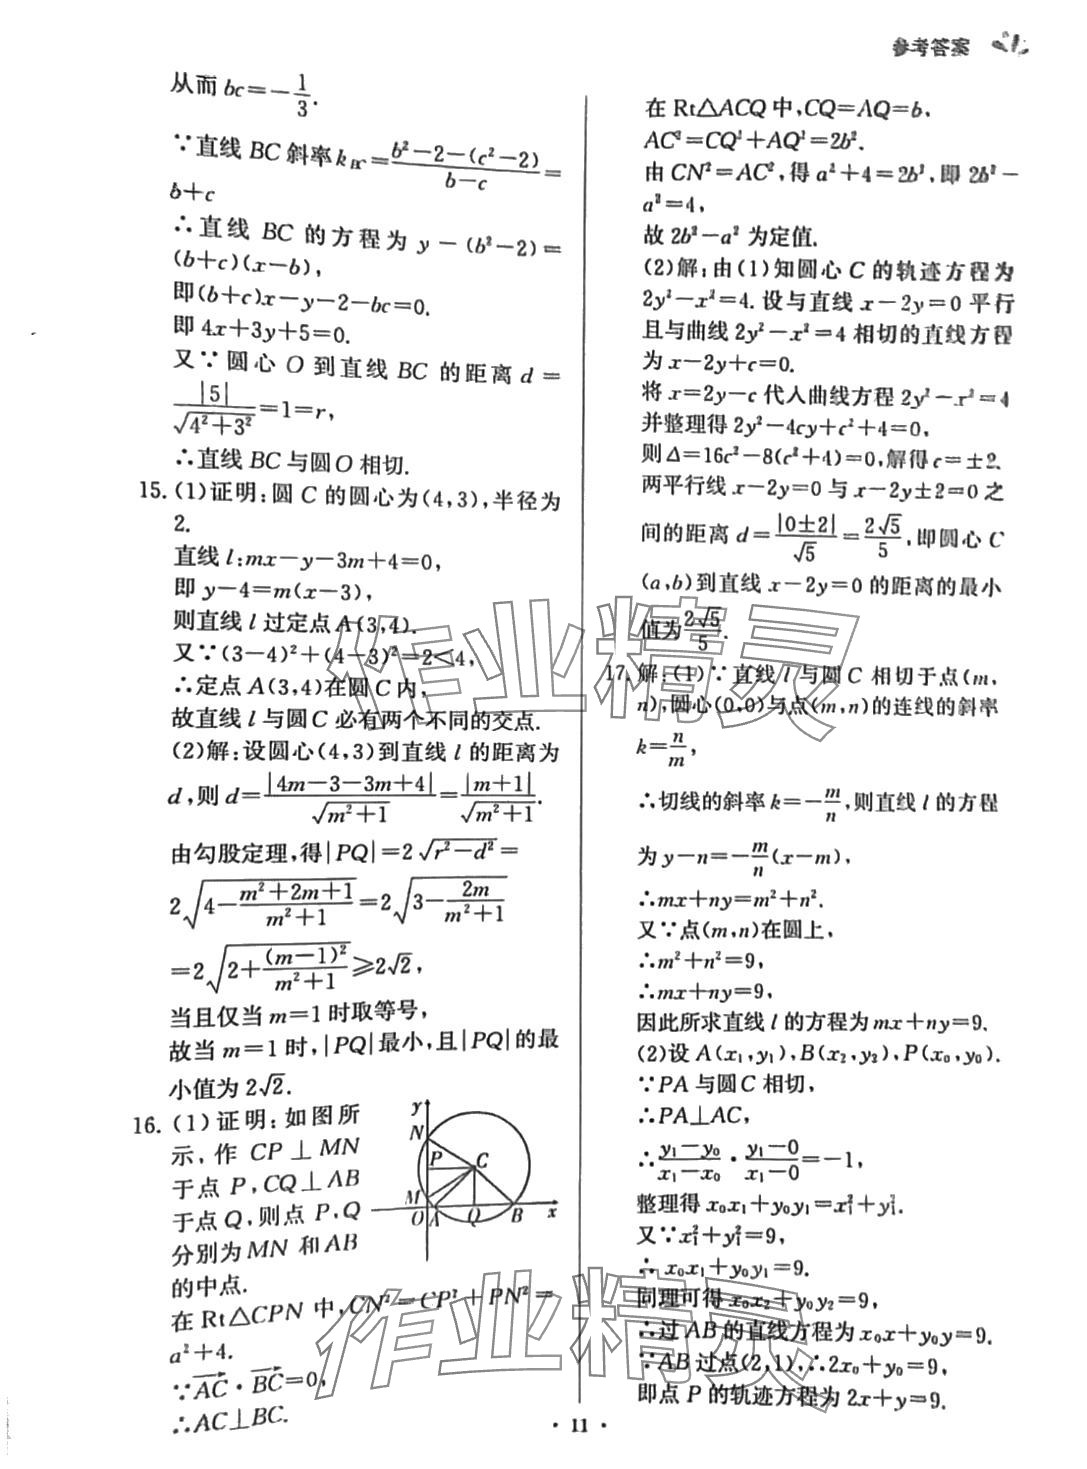 参考答案
从而 bc=-1/3.
∵直线 BC 斜率 k_BC=(b²-2-(c²-2))/(b-c)=
b+c
∴直线 BC 的方程为 y-(b²-2)=
(b+c)(x-b),
即(b+c)x-y-2-bc=0.
即 4x+3y+5=0.
又∵圆心 O 到直线 BC 的距离 d=
|5|/√(4²+3²)=1=r,
∴直线 BC 与圆 O 相切.
15.(1)证明:圆 C 的圆心为(4,3),半径为
2.
直线 l:mx-y-3m+4=0,
即 y-4=m(x-3),
则直线 l 过定点 A(3,4).
又∵(3-4)²+(4-3)²=2<4,
∴定点 A(3,4)在圆 C 内,
故直线 l 与圆 C 必有两个不同的交点.
(2)解:设圆心(4,3)到直线 l 的距离为
d,则 d=|4m-3-3m+4|/√(m²+1)=|m+1|/√(m²+1).
由勾股定理,得|PQ|=2√(r²-d²)=
2√(4-(m²+2m+1)/(m²+1))=2√(3-2m/(m²+1))
=2√(2+(m-1)²/(m²+1))⩾2√2,
当且仅当 m=1 时取等号,
故当 m=1 时,|PQ|最小,且|PQ|的最
小值为 2√2.
16.(1)证明:如图所
示,作 CP⊥MN
于点 P,CQ⊥AB
于点 Q,则点 P,Q
分别为 MN 和 AB
的中点.
y
N
P
C
M
O
A
Q
B
x
在 Rt△CPN 中,CN²=CP²+PN²=
a²+4.
∵AC·BC=0,
∴AC⊥BC.
在 Rt△ACQ 中,CQ=AQ=b,
AC²=CQ²+AQ²=2b².
由 CN²=AC²,得 a²+4=2b²,即 2b²-
a²=4,
故 2b²-a² 为定值.
(2)解:由(1)知圆心 C 的轨迹方程为
2y²-x²=4. 设与直线 x-2y=0 平行
且与曲线 2y²-x²=4 相切的直线方程
为 x-2y+c=0.
将 x=2y-c 代入曲线方程 2y²-x²=4
并整理得 2y²-4cy+c²+4=0,
则 Δ=16c²-8(c²+4)=0,解得 c=±2.
两平行线 x-2y=0 与 x-2y±2=0 之
间的距离 d=|0±2|/√5=2√5/5,即圆心 C
(a,b)到直线 x-2y=0 的距离的最小
值为2√5/5.
17.解:(1)∵直线 l 与圆 C 相切于点(m,
n),圆心(0,0)与点(m,n)的连线的斜率
k=n/m,
∴切线的斜率 k=-m/n,则直线 l 的方程
为 y-n=-m/n(x-m),
∴mx+ny=m²+n².
又∵点(m,n)在圆上,
∴m²+n²=9,
∴mx+ny=9,
因此所求直线 l 的方程为 mx+ny=9.
(2)设 A(x₁,y₁),B(x₂,y₂),P(x₀,y₀).
∵PA 与圆 C 相切,
∴PA⊥AC,
∴(y₁-y₀)/(x₁-x₀)·(y₁-0)/(x₁-0)=-1,
整理得 x₀x₁+y₀y₁=x₁²+y₁².
又∵x₁²+y₁²=9,
∴ x₀x₁+y₀y₁=9.
同理可得 x₀x₂+y₀y₂=9,
∴过 AB 的直线方程为 x₀x+y₀y=9.
∵AB 过点(2,1),∴2x₀+y₀=9,
即点 P 的轨迹方程为 2x+y=9.
· 11 ·
作业精灵
作业精灵